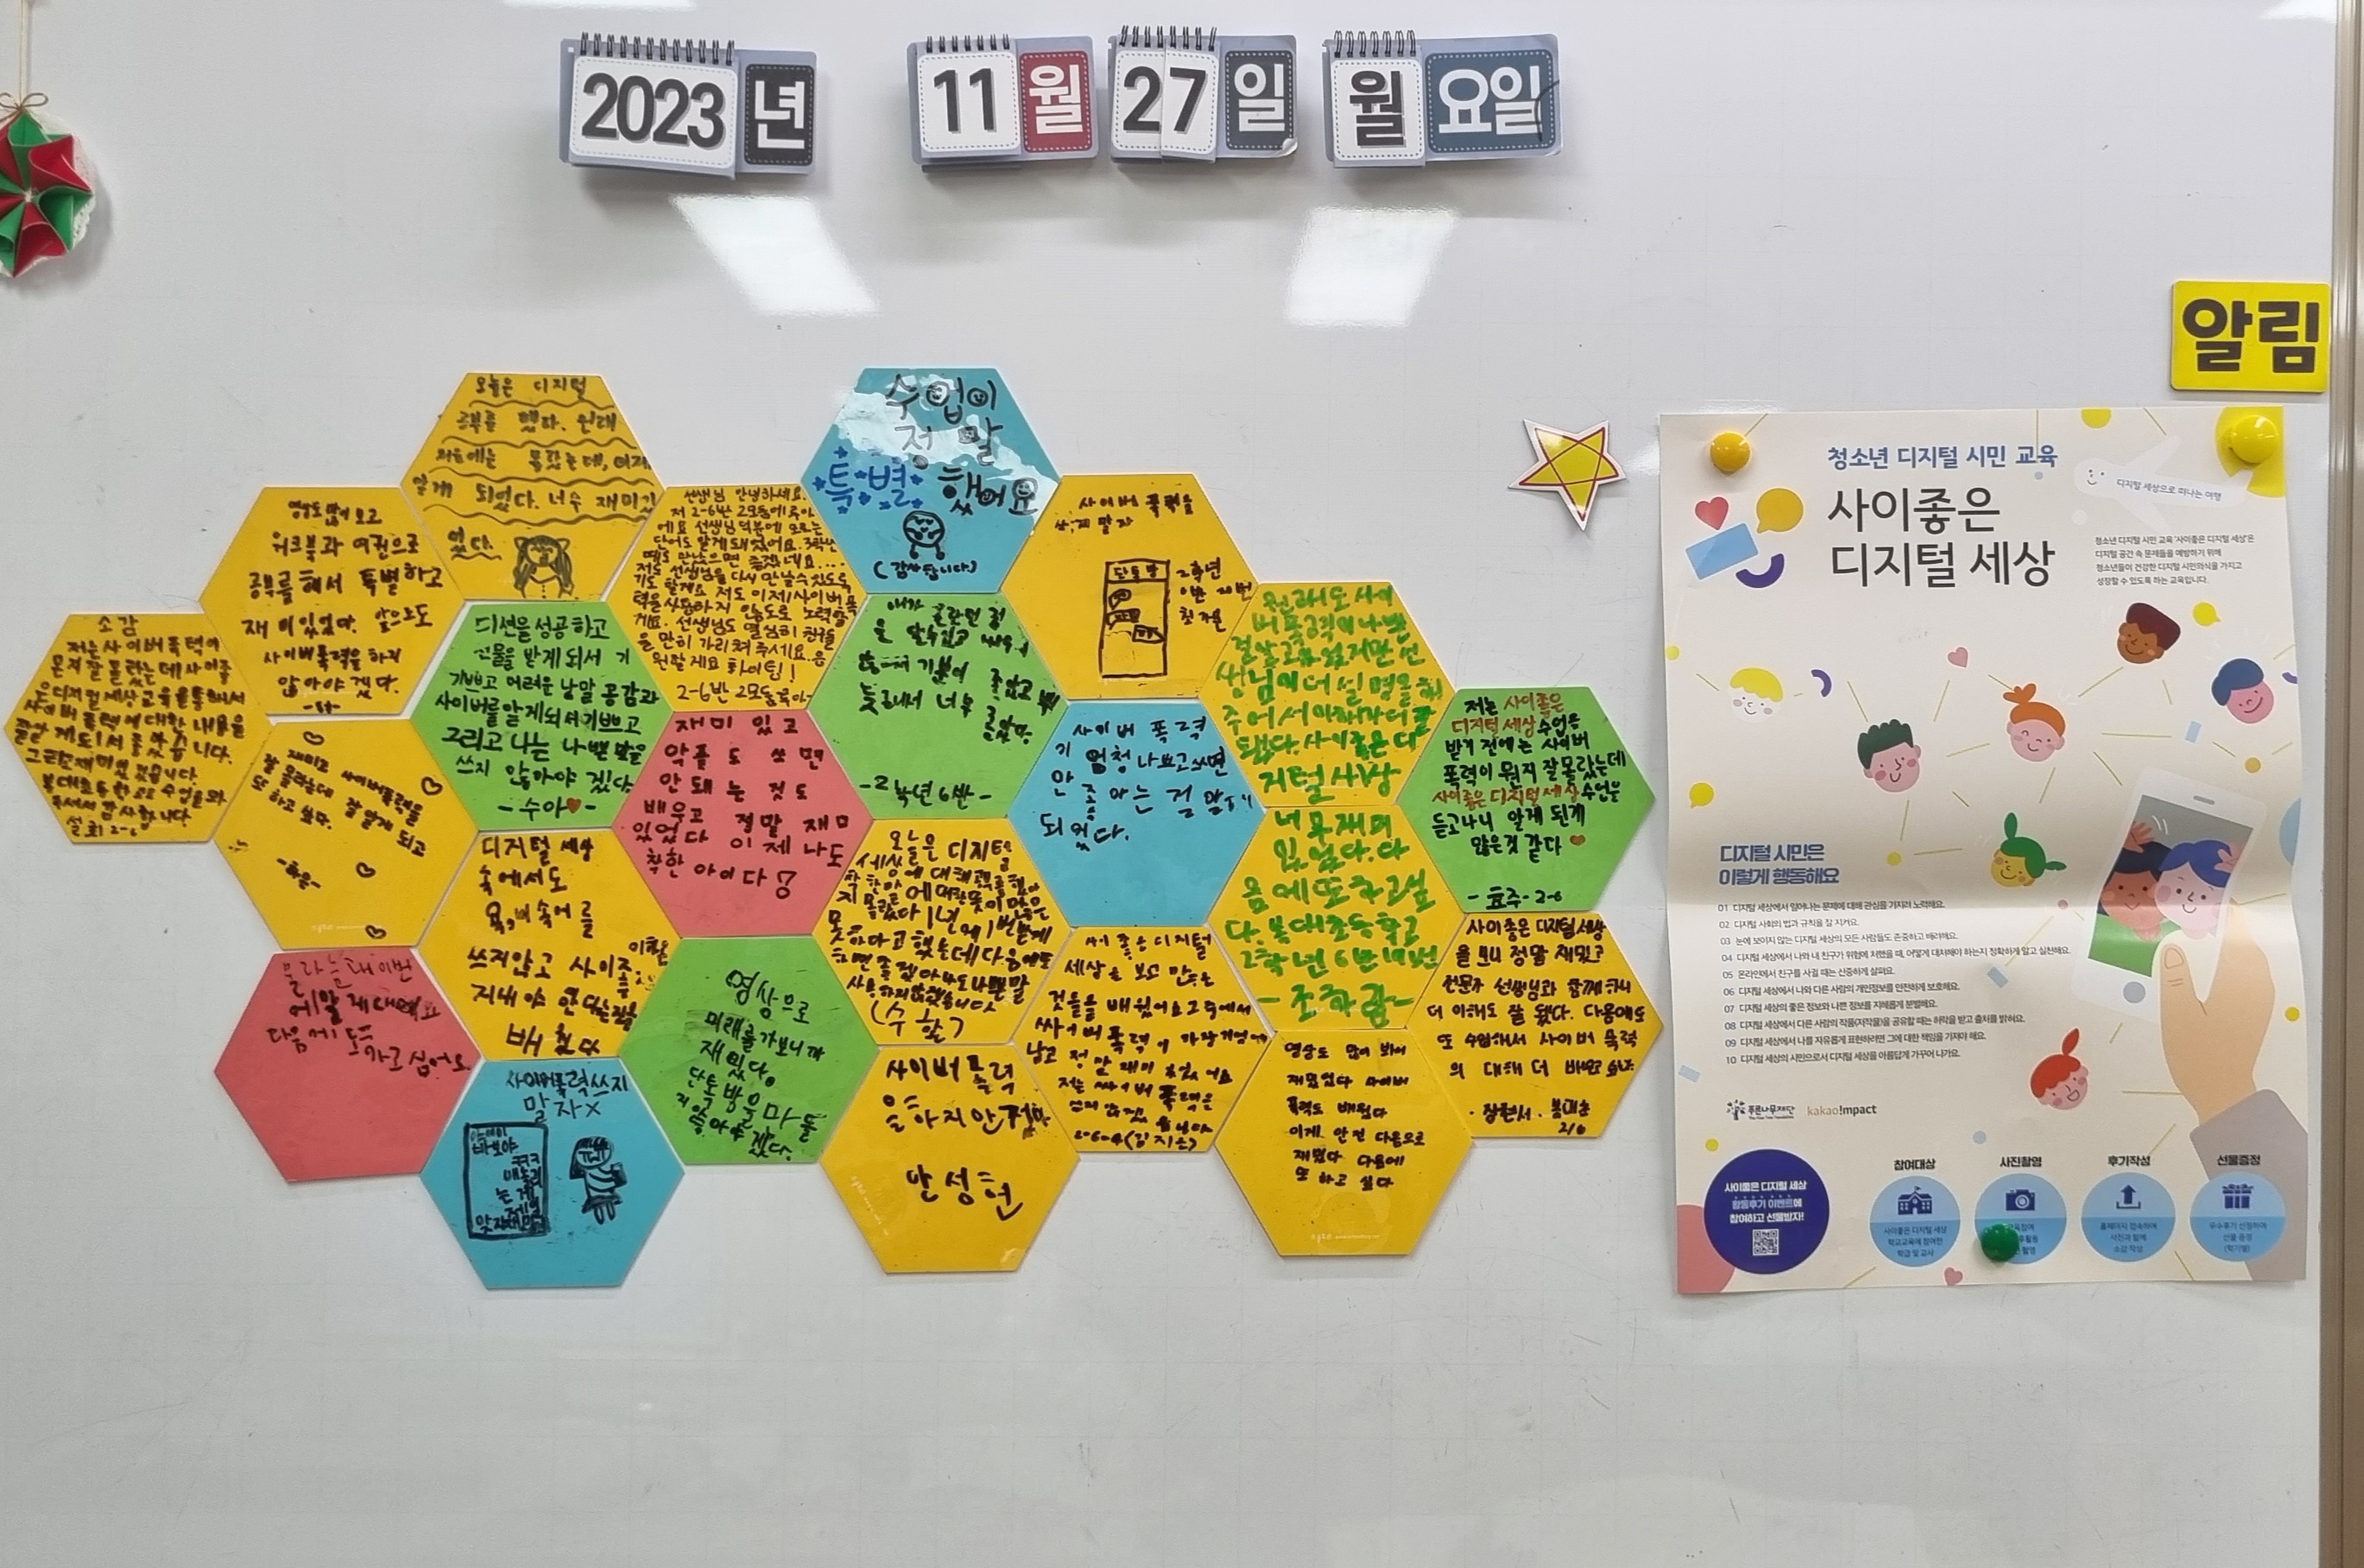 2023 년
11 월
27 일
월 요일
알림
오늘은 디지털
공부를 했다. 원래
처음에는 몰랐는데, 이제
알게 되었다. 너무 재미있
었다.
수업이
정말
특별했어요
(감사합니다)
영상도 많이 보고
워크북과 여권으로
공부를 해서 특별하고
재미있었다. 앞으로도
사이버폭력을 하지
않아야겠다.
선생님 안녕하세요.
저 2-6반
에요 선생님 덕분에 모르는
단어도 알게 돼었어요.
저도 선생님을 다시 만날수 있도록
기도 할게요 저도 이제 사이버폭
력을 하지 않도록 노력할
게요. 선생님도 열심히 친구들
을 많이 가리켜 주세요. 응
원할게요 화이팅!
2-6반
사이버 폭력을
하지 말자
단톡방
2학년
소감
저는 사이버 폭력이
뭔지 잘 몰랐는데 사이좋
은 디지털 세상 교육을 통해서
사이버 폭력에 대한 내용을
잘 알게 되어서 좋았습니다.
그리고 재미있었습니다.
봉대초등학교로 수업을 와
주셔서 감사합니다.
미션을 성공하고
선물을 받게 되서 기
기쁘고 어려운 낱말 공감과
사이버를 알게 되서 기쁘고
그리고 나는 나쁜 말을
쓰지 않아야 겠다
-수아♥-
내가 몰랐던 점
을 알수있고
기분이 좋았고
너무
좋았다.
-2학년 6반-
원래도 사이
버 폭력이 나쁜
걸 알고 있었지만 선
생님이 더 설명을 해
주어서 이해가 더 잘
됐다. 사이좋은 디
지털 세상
너무 재미
있었다. 다
음에 또 하고 싶
다. 봉대초등학교
2학년 6반
-조하람-
저는 사이좋은
디지털 세상 수업을
받기 전에는 사이버
폭력이 뭔지 잘 몰랐는데
사이좋은 디지털 세상 수업을
듣고나니 알게 된게
많은것 같다 ♥
-효주- 2-6
재미로 사이버폭력을
잘 몰랐는데 잘 알게 되고
또 하고 싶다.
-하은-
재미 있고
악플도 쓰면
안돼는 것도
배우고 정말 재미
있었다 이제 나도
착한 아이다!
사이버 폭력
기 엄청 나쁘고 쓰면
안 좋아는 걸 알게
되었다.
디지털 세상
속에서도
욕, 비속어를
쓰지않고 사이좋게
지내야 한다는 것을
배웠다
오늘은 디지털
세상에 대해 공부를 했다
지 몰랐다 1년에 1번밖에
못한다고 했는데 다음에도
하면 좋겠다 나도 나쁜말
사용하지 않겠습니다
몰라는데 이번
에 알게 대엤어요
다음에도
하고 십어요
영상으로
미래를 가보니까
재밌다.
단톡방을 마들
지 않아야
겠다.
사이좋은 디지털
세상을 보고 많은
것들을 배웠어요 그중에서
싸이버 폭력이 가장 기억에
남고 정말 재미있었어요
저는 싸이버 폭력은
쓰지 않겠습니다
2-6-4 (김지은)
사이좋은 디지털 세상
을 보니 정말 재밌고
전문가 선생님과 함께 하니
더 이해도 잘 됐다. 다음에도
또 수업해서 사이버 폭력
의 대해 더 배우고 싶다.
봉대초
2/6
사이버폭력쓰지
말자X
바보야
사이버폭력
을 하지안
안성현
영상도 많이 봐서
재밌었다 사이버
폭력도 배웠다
이게 안전 다음으로
재밌다 다음에
또 하고 싶다
청소년 디지털 시민 교육
사이좋은
디지털 세상
디지털 세상으로 떠나는 여행
청소년 디지털 시민 교육 '사이좋은 디지털 세상'은
디지털 공간 속 문제들을 예방하기 위해
청소년들이 건강한 디지털 시민의식을 가지고
성장할 수 있도록 하는 교육입니다.
디지털 시민은
이렇게 행동해요
01 디지털 세상에서 일어나는 문제에 대해 관심을 가지려 노력해요.
02 디지털 사회의 법과 규칙을 잘 지켜요.
03 눈에 보이지 않는 디지털 세상의 모든 사람들도 존중하고 배려해요.
04 디지털 세상에서 나와 내 친구가 위험에 처했을 때, 어떻게 대처해야 하는지 정확하게 알고 실천해요.
05 온라인에서 친구를 사귈 때는 신중하게 살펴요.
06 디지털 세상에서 나와 다른 사람의 개인정보를 안전하게 보호해요.
07 디지털 세상의 좋은 정보와 나쁜 정보를 지혜롭게 분별해요.
08 디지털 세상에서 다른 사람의 작품(저작물)을 공유할 때는 허락을 받고 출처를 밝혀요.
09 디지털 세상에서 나를 자유롭게 표현하려면 그에 대한 책임을 가져야 해요.
10 디지털 세상의 시민으로서 디지털 세상을 아름답게 가꾸어 나가요.
푸른나무재단 kakao!mpact
사이좋은 디지털 세상
활동후기 이벤트에
참여하고 선물받자!
참여대상
사이좋은 디지털 세상
학교교육에 참여한
학급 및 교사
사진촬영
후기작성
홈페이지 접속하여
사진과 함께
소감 작성
선물증정
우수후기 선정하여
선물 증정
(학기별)